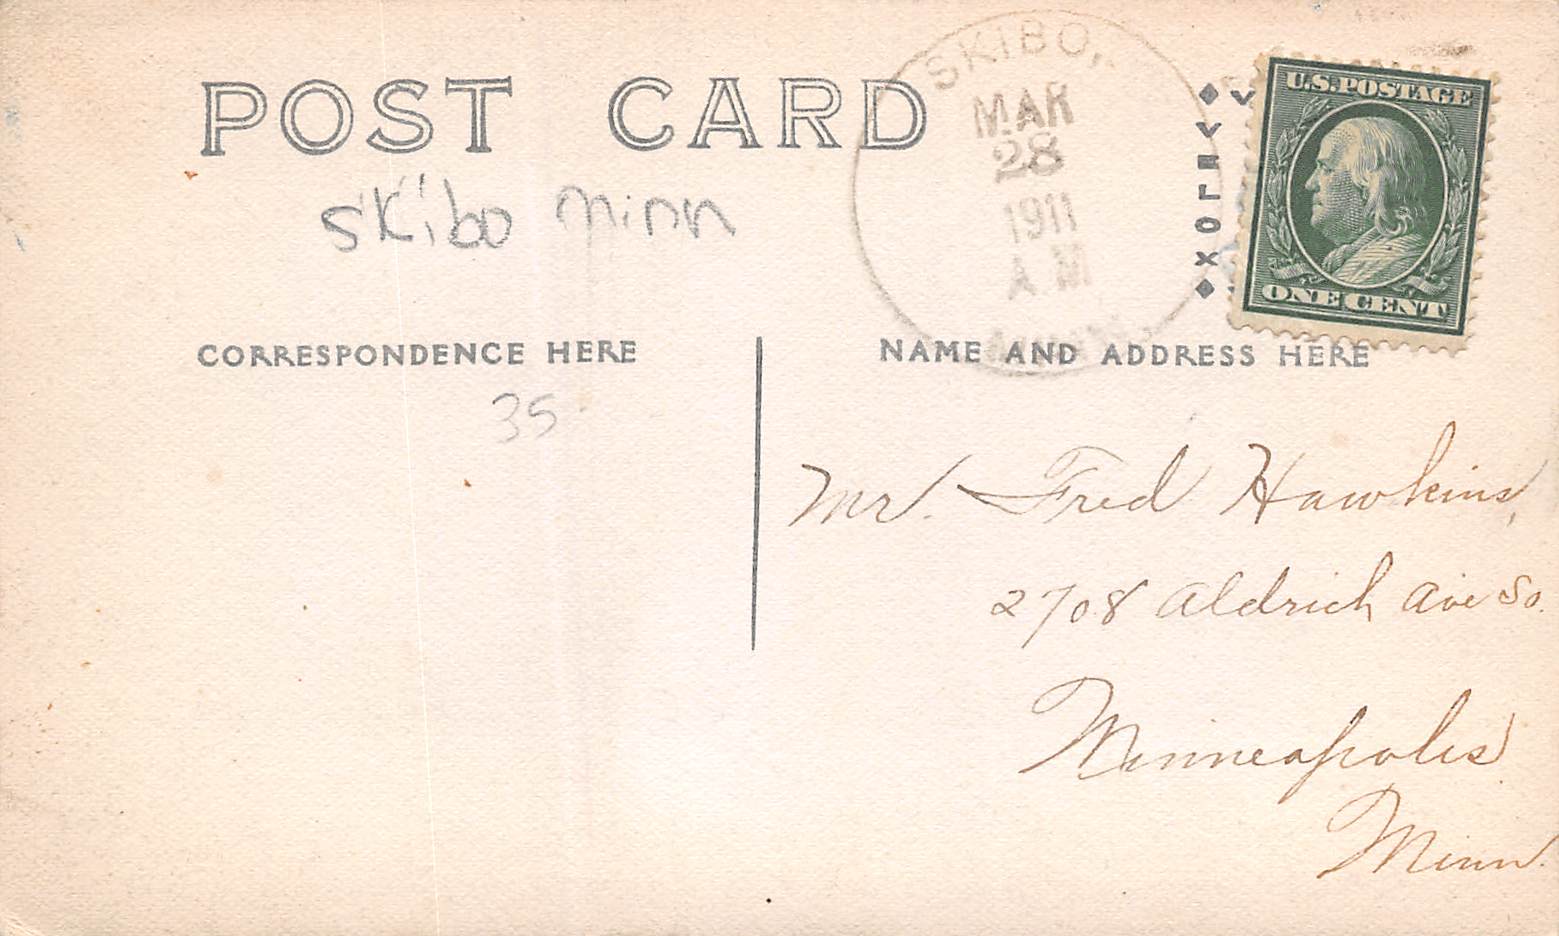 POST CARD
SKIBO,
MAR
28
1911
A M
MINN.
U.S. POSTAGE
ONE CENT
Skibo Minn
CORRESPONDENCE HERE
NAME AND ADDRESS HERE
AZO
35
Mr. Fred Hawkins,
2708 Aldrich Ave So.
Minneapolis
Minn.